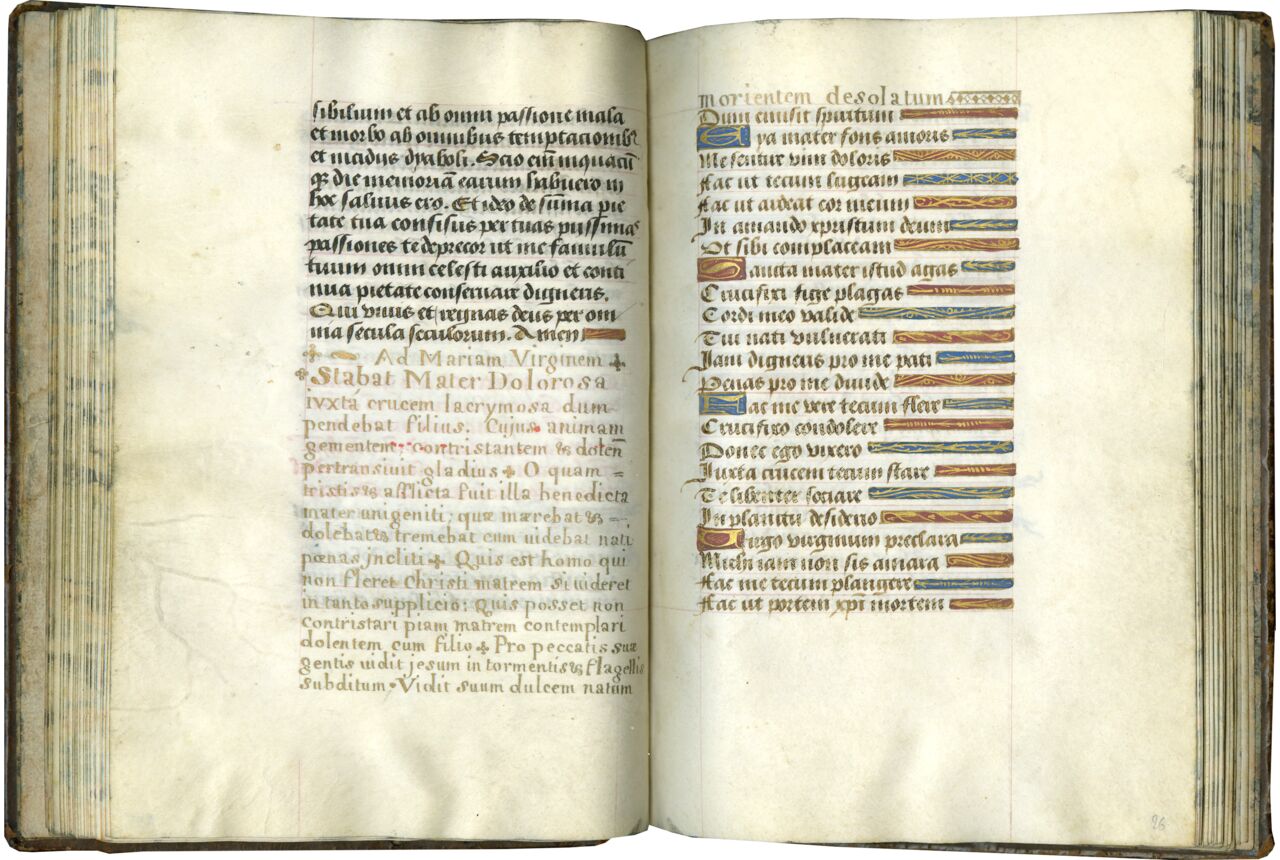 sibilium et ab omni passione mala
et morbo ab omnibus temptacionib᷒
et incidus dyaboli. Scio eni͂ inquacu͂
q͂ die memoria͂ earum habuero in
hoc saluus ero. Et ideo de suma pie
tate tua confisus per tuas pussimas
passiones te deprecor ut me famulu͂
tuum omni celesti auxilio et conti
nua pietate conseruare digneris.
Qui viuis et regnas deus per om
nia secula seculorum. Amen
Ad Mariam Virginem
Stabat Mater Dolorosa
iuxtá crucem lacrymosa dum
pendebat filius. Cujus animam
gementem; contristantem & dolen͂
pertransiuit gladius O quam =
tristis & afflicta fuit illa benedicta
mater unigeniti; quæ mærebat &
dolebat & tremebat cum uidebat nati
pœnas jncliti Quis est homo qui
non fleret Christi matrem si uideret
in tanto supplicio: Quis posset non
contristari piam matrem contemplari
dolentem cum filio Pro peccatis suæ
gentis uidit jesum in tormentis & flagellis
subditum Vidit suum dulcem natum
morientem desolatum
Dum emisit spiritum
Eya mater fons amoris
Me sentire vim doloris
Fac ut tecum lugeam
Fac ut ardeat cor meum
In amando xpristum deum
Ut sibi complaceam
Sancta mater istud agas
Crucifixi fige plagas
Cordi meo valide
Tui nati vulnerati
Jam digneris pro me pati
Penas pro me diuide
Fac me vere tecum flere
Crucifixo condolere
Donec ego vixero
Juxta crucem tecum stare
Te libenter sociare
In planctu desiderio
Virgo virginum preclara
Michi iam non sis amara
Fac me tecum plangere
Fac ut portem xpi͂ mortem
26